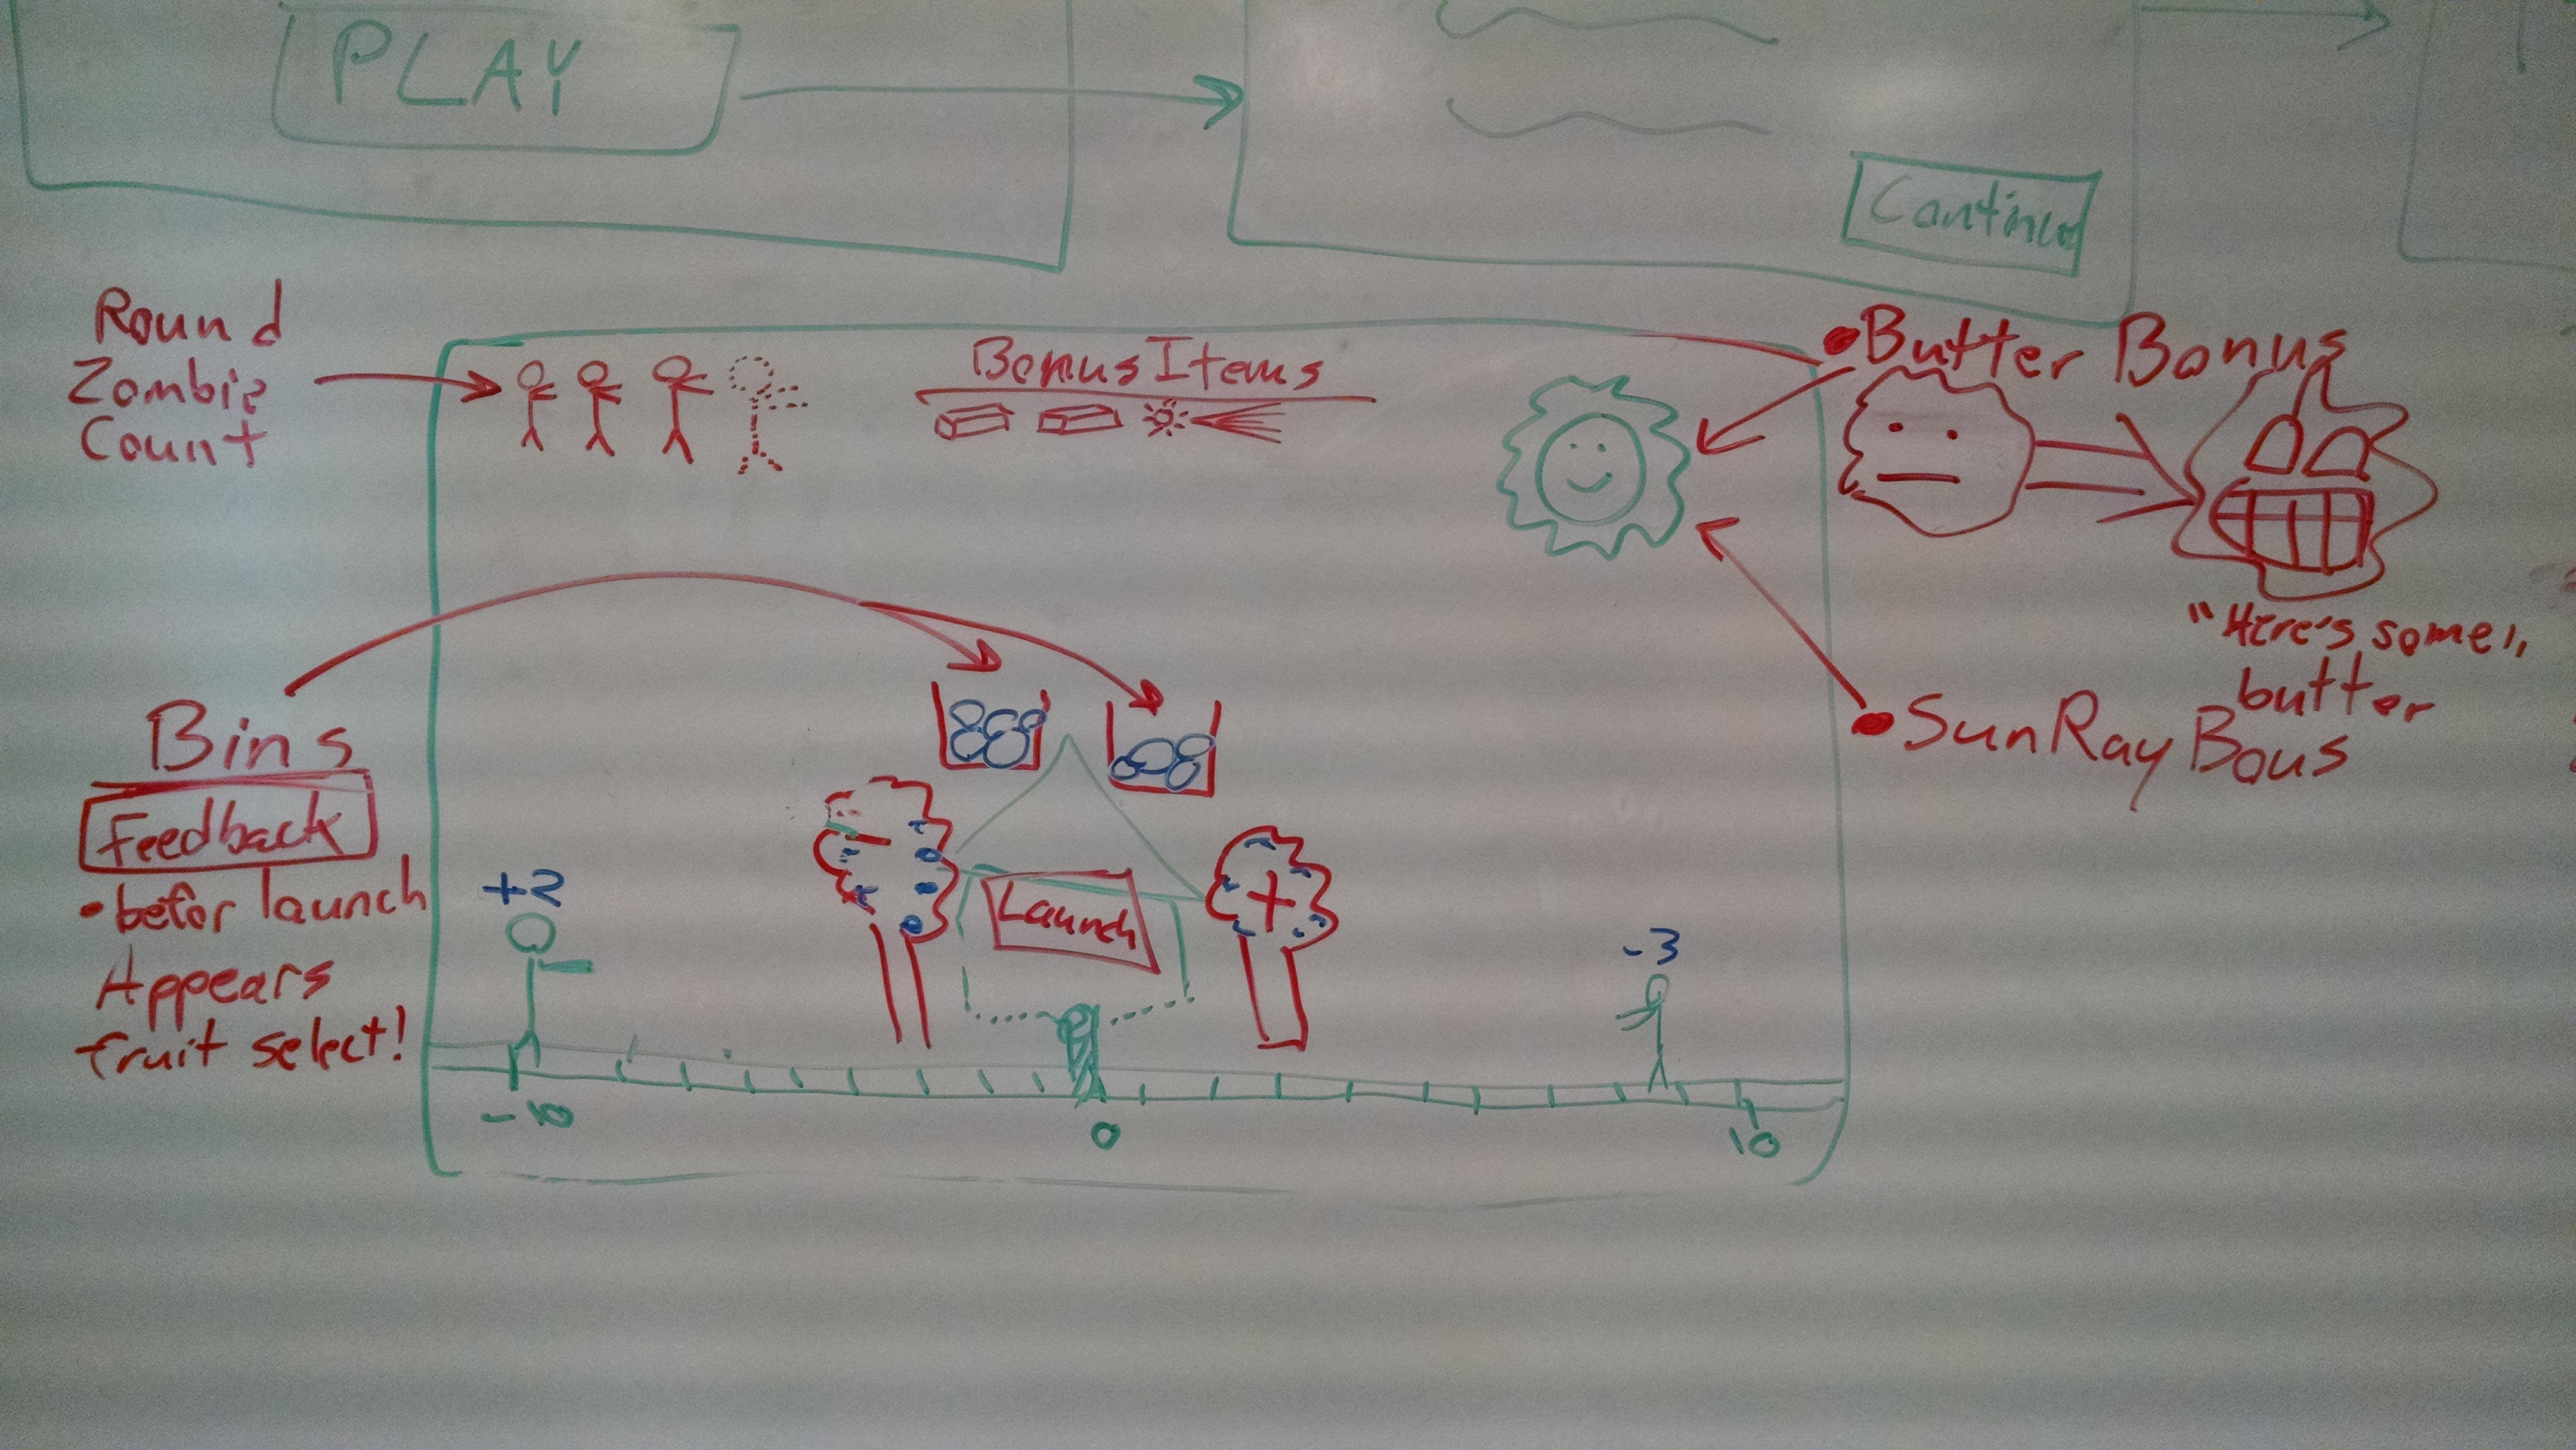 PLAY
Continue
Round
Zombie
Count
Bonus Items
Butter Bonus
"Here's some"
butter
SunRay Bous
Bins
Feedback
•befor launch
Appears
fruit select!
+2
Launch
-3
-10
0
10